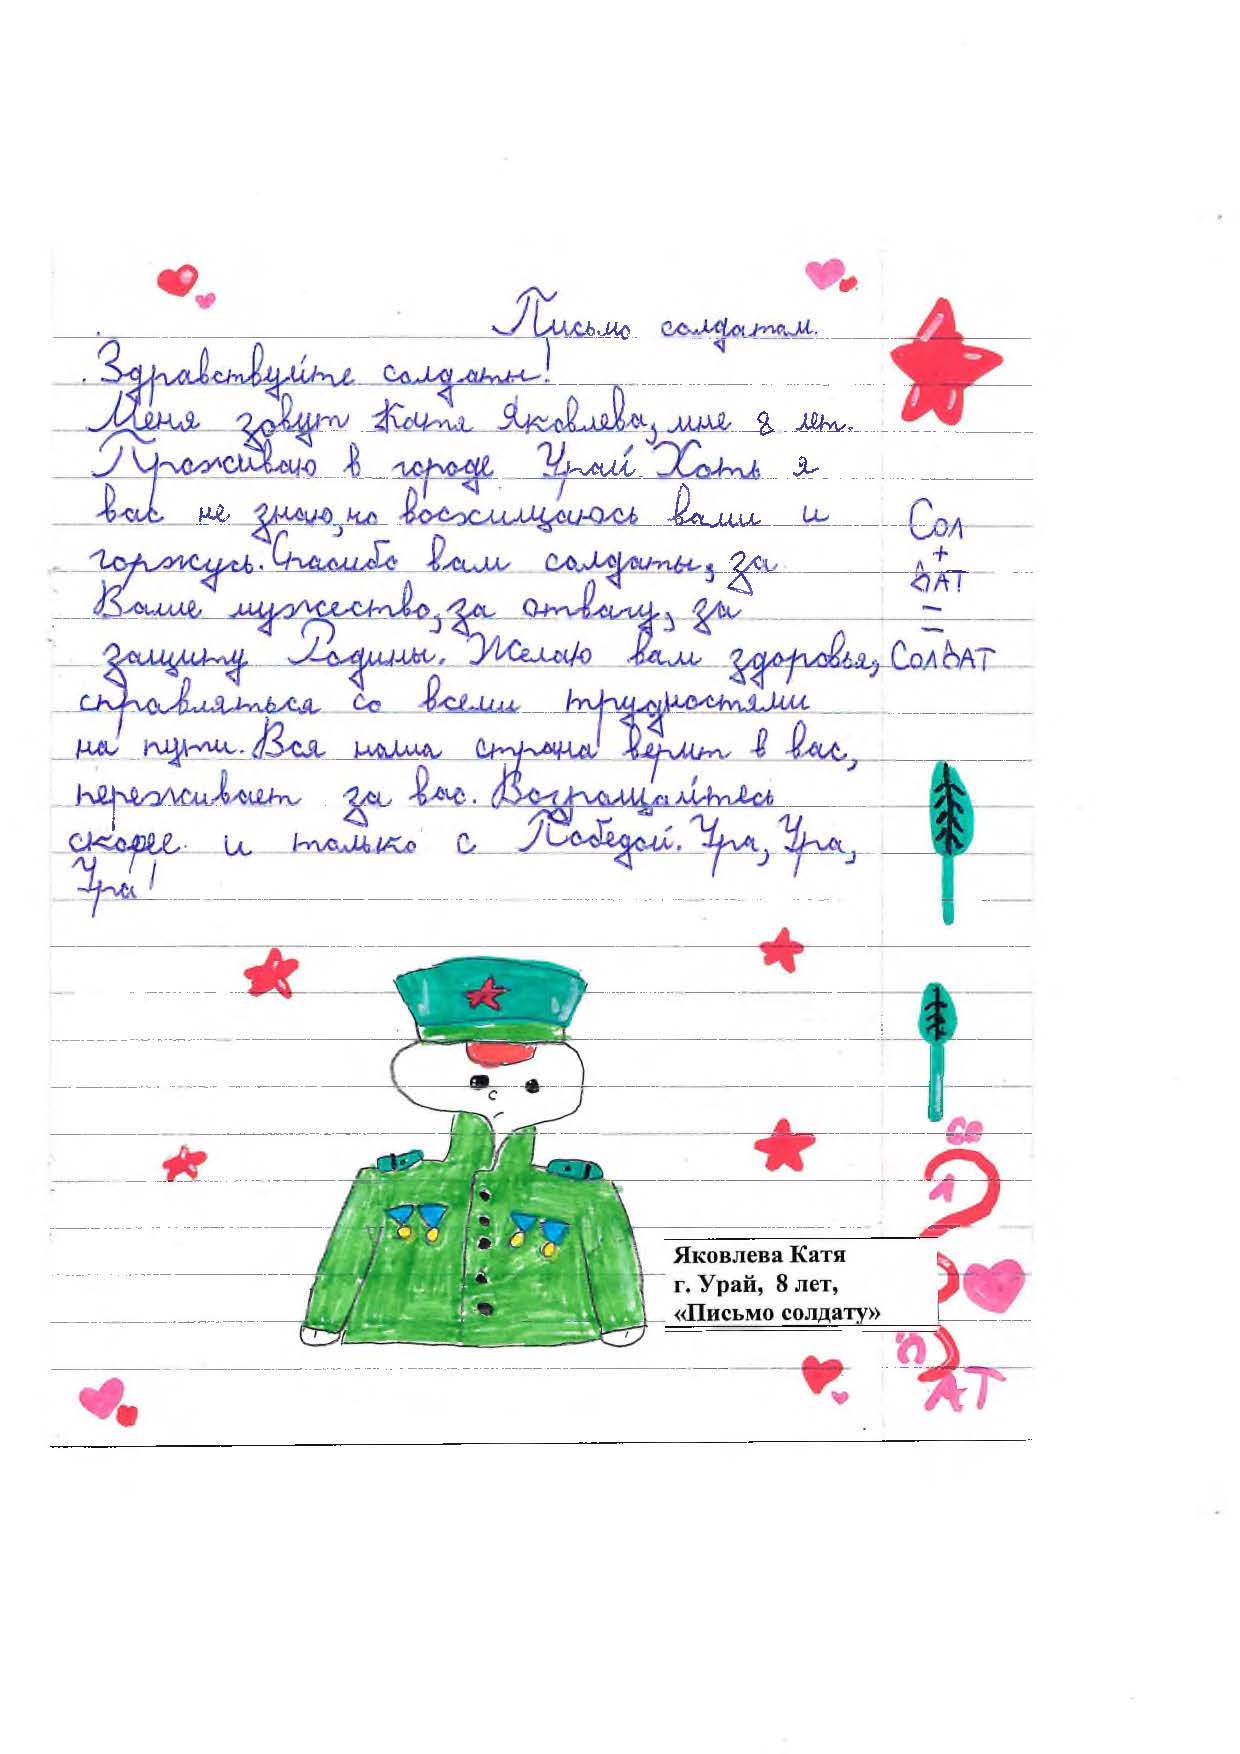 Письмо солдатам.
Здравствуйте солдаты!
Меня зовут Катя Яковлева, мне 8 лет.
Проживаю в городе Урай. Хоть я
вас не знаю, но восхищаюсь вами и
горжусь. Спасибо вам солдаты, за
Ваше мужество, за отвагу, за
защиту Родины. Желаю вам здоровья,
справляться со всеми трудностями
на пути. Вся наша страна верит в вас,
переживает за вас. Возращайтесь
скорее и только с Победой. Ура, Ура,
Ура!
Сол
+
ДАТ
=
СОЛДАТ
Яковлева Катя
г. Урай, 8 лет,
«Письмо солдату»
АТ